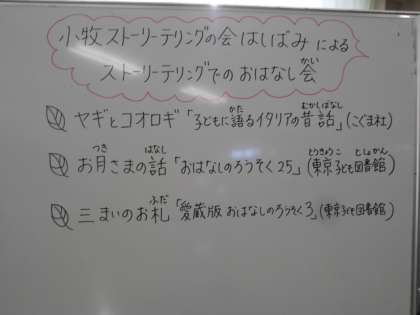 小牧ストーリーテリングの会 はしばみ による
ストーリーテリングでのおはなし会
ヤギとコオロギ「子どもに語るイタリアの昔話」(こぐま社)
お月さまの話「おはなしのろうそく25」(東京子ども図書館)
三まいのお札「愛蔵版 おはなしのろうそく3」(東京子ども図書館)